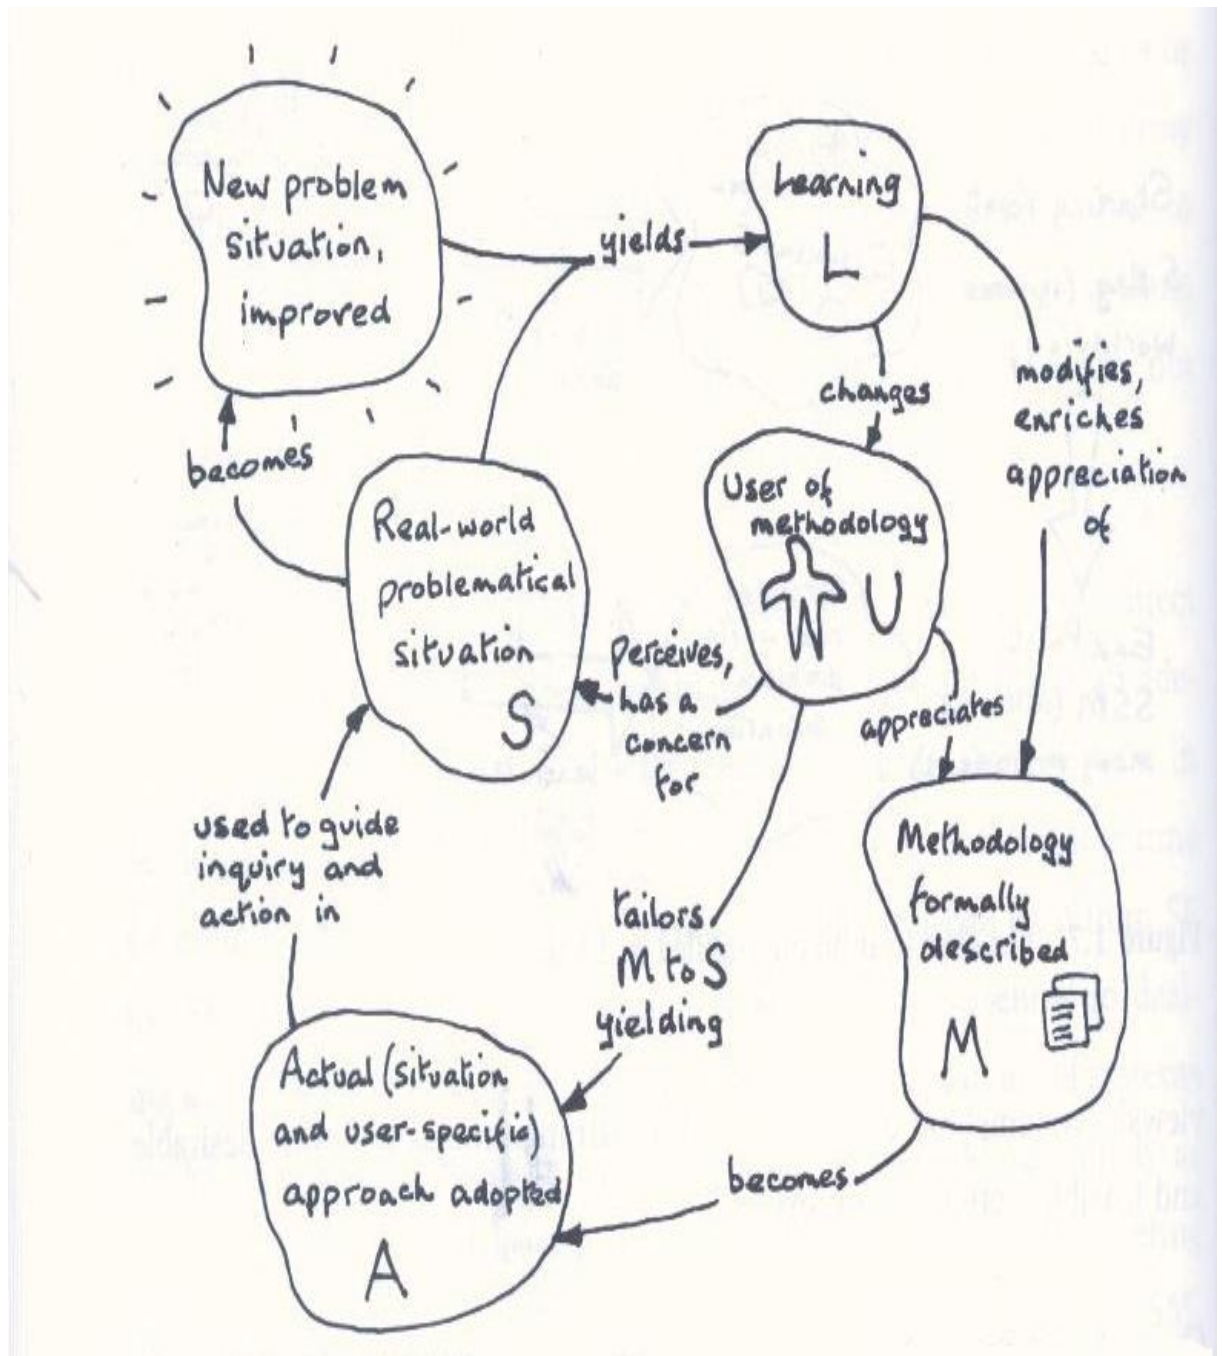 New problem
situation,
improved
yields
Learning
L
changes
modifies,
enriches
appreciation
of
becomes
Real-world
problematical
situation
S
User of
methodology
U
perceives,
has a
concern
for
appreciates
used to guide
inquiry and
action in
tailors
M to S
yielding
Methodology
formally
described
M
Actual (situation
and user-specific)
approach adopted
A
becomes